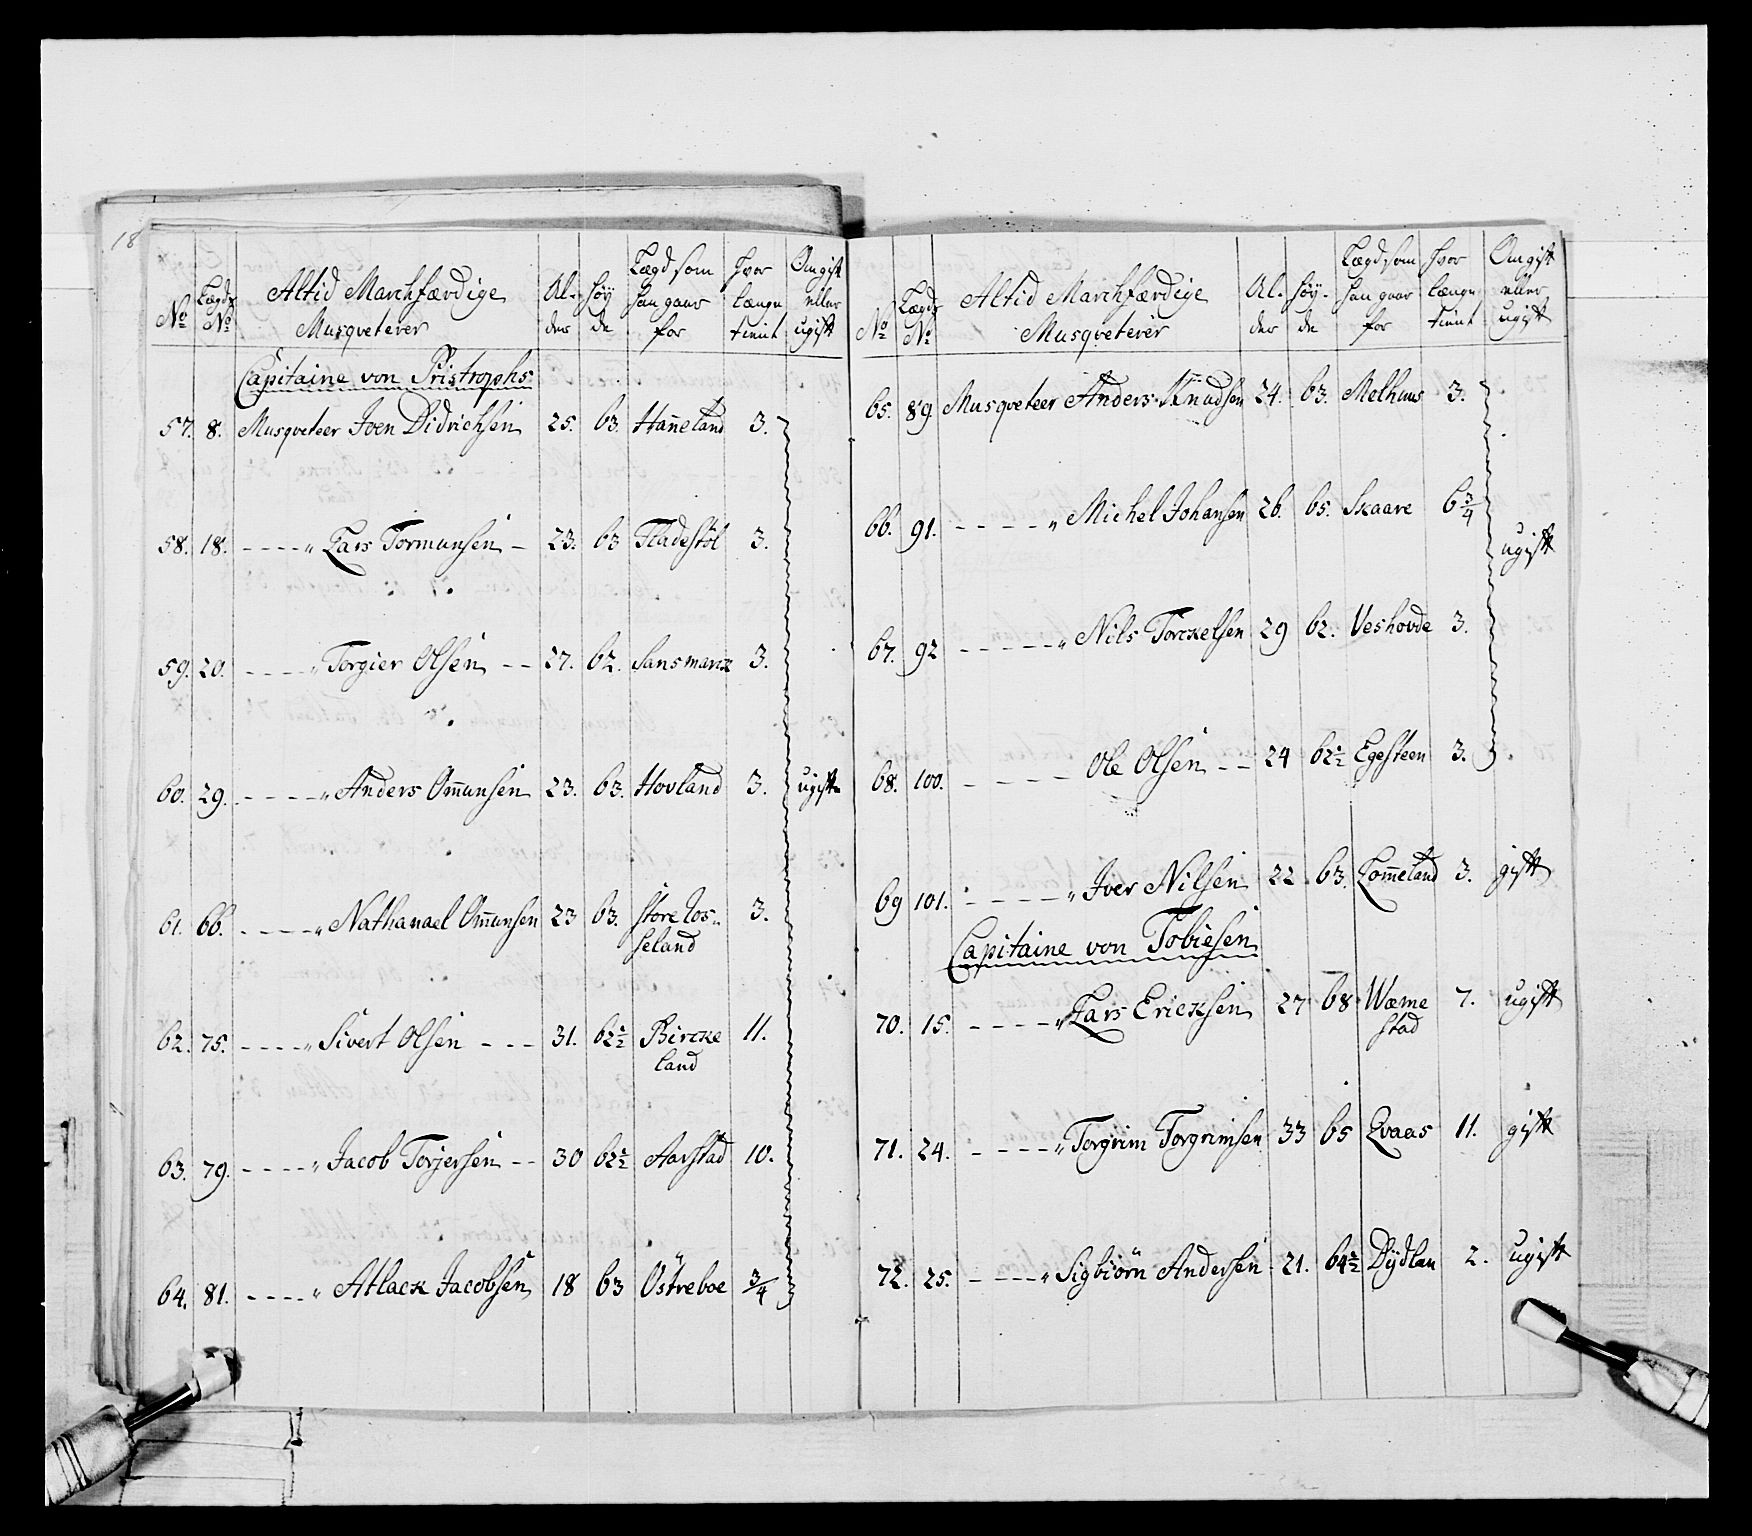 18
No Lægds No Altid Marchfærdige Musqveterer Al- der Høy de Lægd som han gaar for hvor længe tient Om gift eller ugift
Capitaine von Pristrophs
57. 8. Musqveteer Iven Didrichsen 25. 63. Hañeland 3.
58. 18. - - - - „ Lars Tormunsen - 23. 63 Fladestøl 3.
59. 20. - - - - „ Torgier Olsen - - 27. 62. Sansmarck 3.
60. 29. - - - - „ Anders Om̄unsen 23. 63. Hovland 3. ugift
61. 66. - - - - „ Nathanael Om̄unsen 23 63. store Jos-
seland 3.
62. 75. - - - - „ Sivert Olsen - - - 31. 62½ Bircke
land 11.
63. 79. - - - - „ Jacob Torjersen - - 30 62½ Aarstad 10.
64. 81. - - - - „ Atlack Jacobsen 18 63 Östreboe 3/4
No Lægds No Altid Marchfærdige Musqveterer Al- der Høy- de Lægd som han gaar for hvor længe tient Om gift eller ugift
65. 89 Musqveteer Anders Knudsen 24. 63. Melhuus 3.
66. 91. - - - - - „ Michel Johansen 26. 65. Skaare 6 3/4
ugift
67. 92 - - - - - „ Nils Torckelsen 29 62. Veshovde 3.
68. 100. - - - - - Ole Olsen - - 24 62½ Egesteen 3.
69 101. - - - - - „ Iver Nilsen 22 63. Lom̄eland 3. gift
Capitaine von Tobiesen
70. 15. - - - - „ Lars Ericksen 27 68 Wæme
stad 7. ugift
71. 24. - - - - „ Torgrim Torgrimsen 33 65 Qvaas 11. gift
72. 25. - - - - „ Sigbiörn Andersen 21. 64½ Dÿdlan 2. ugift